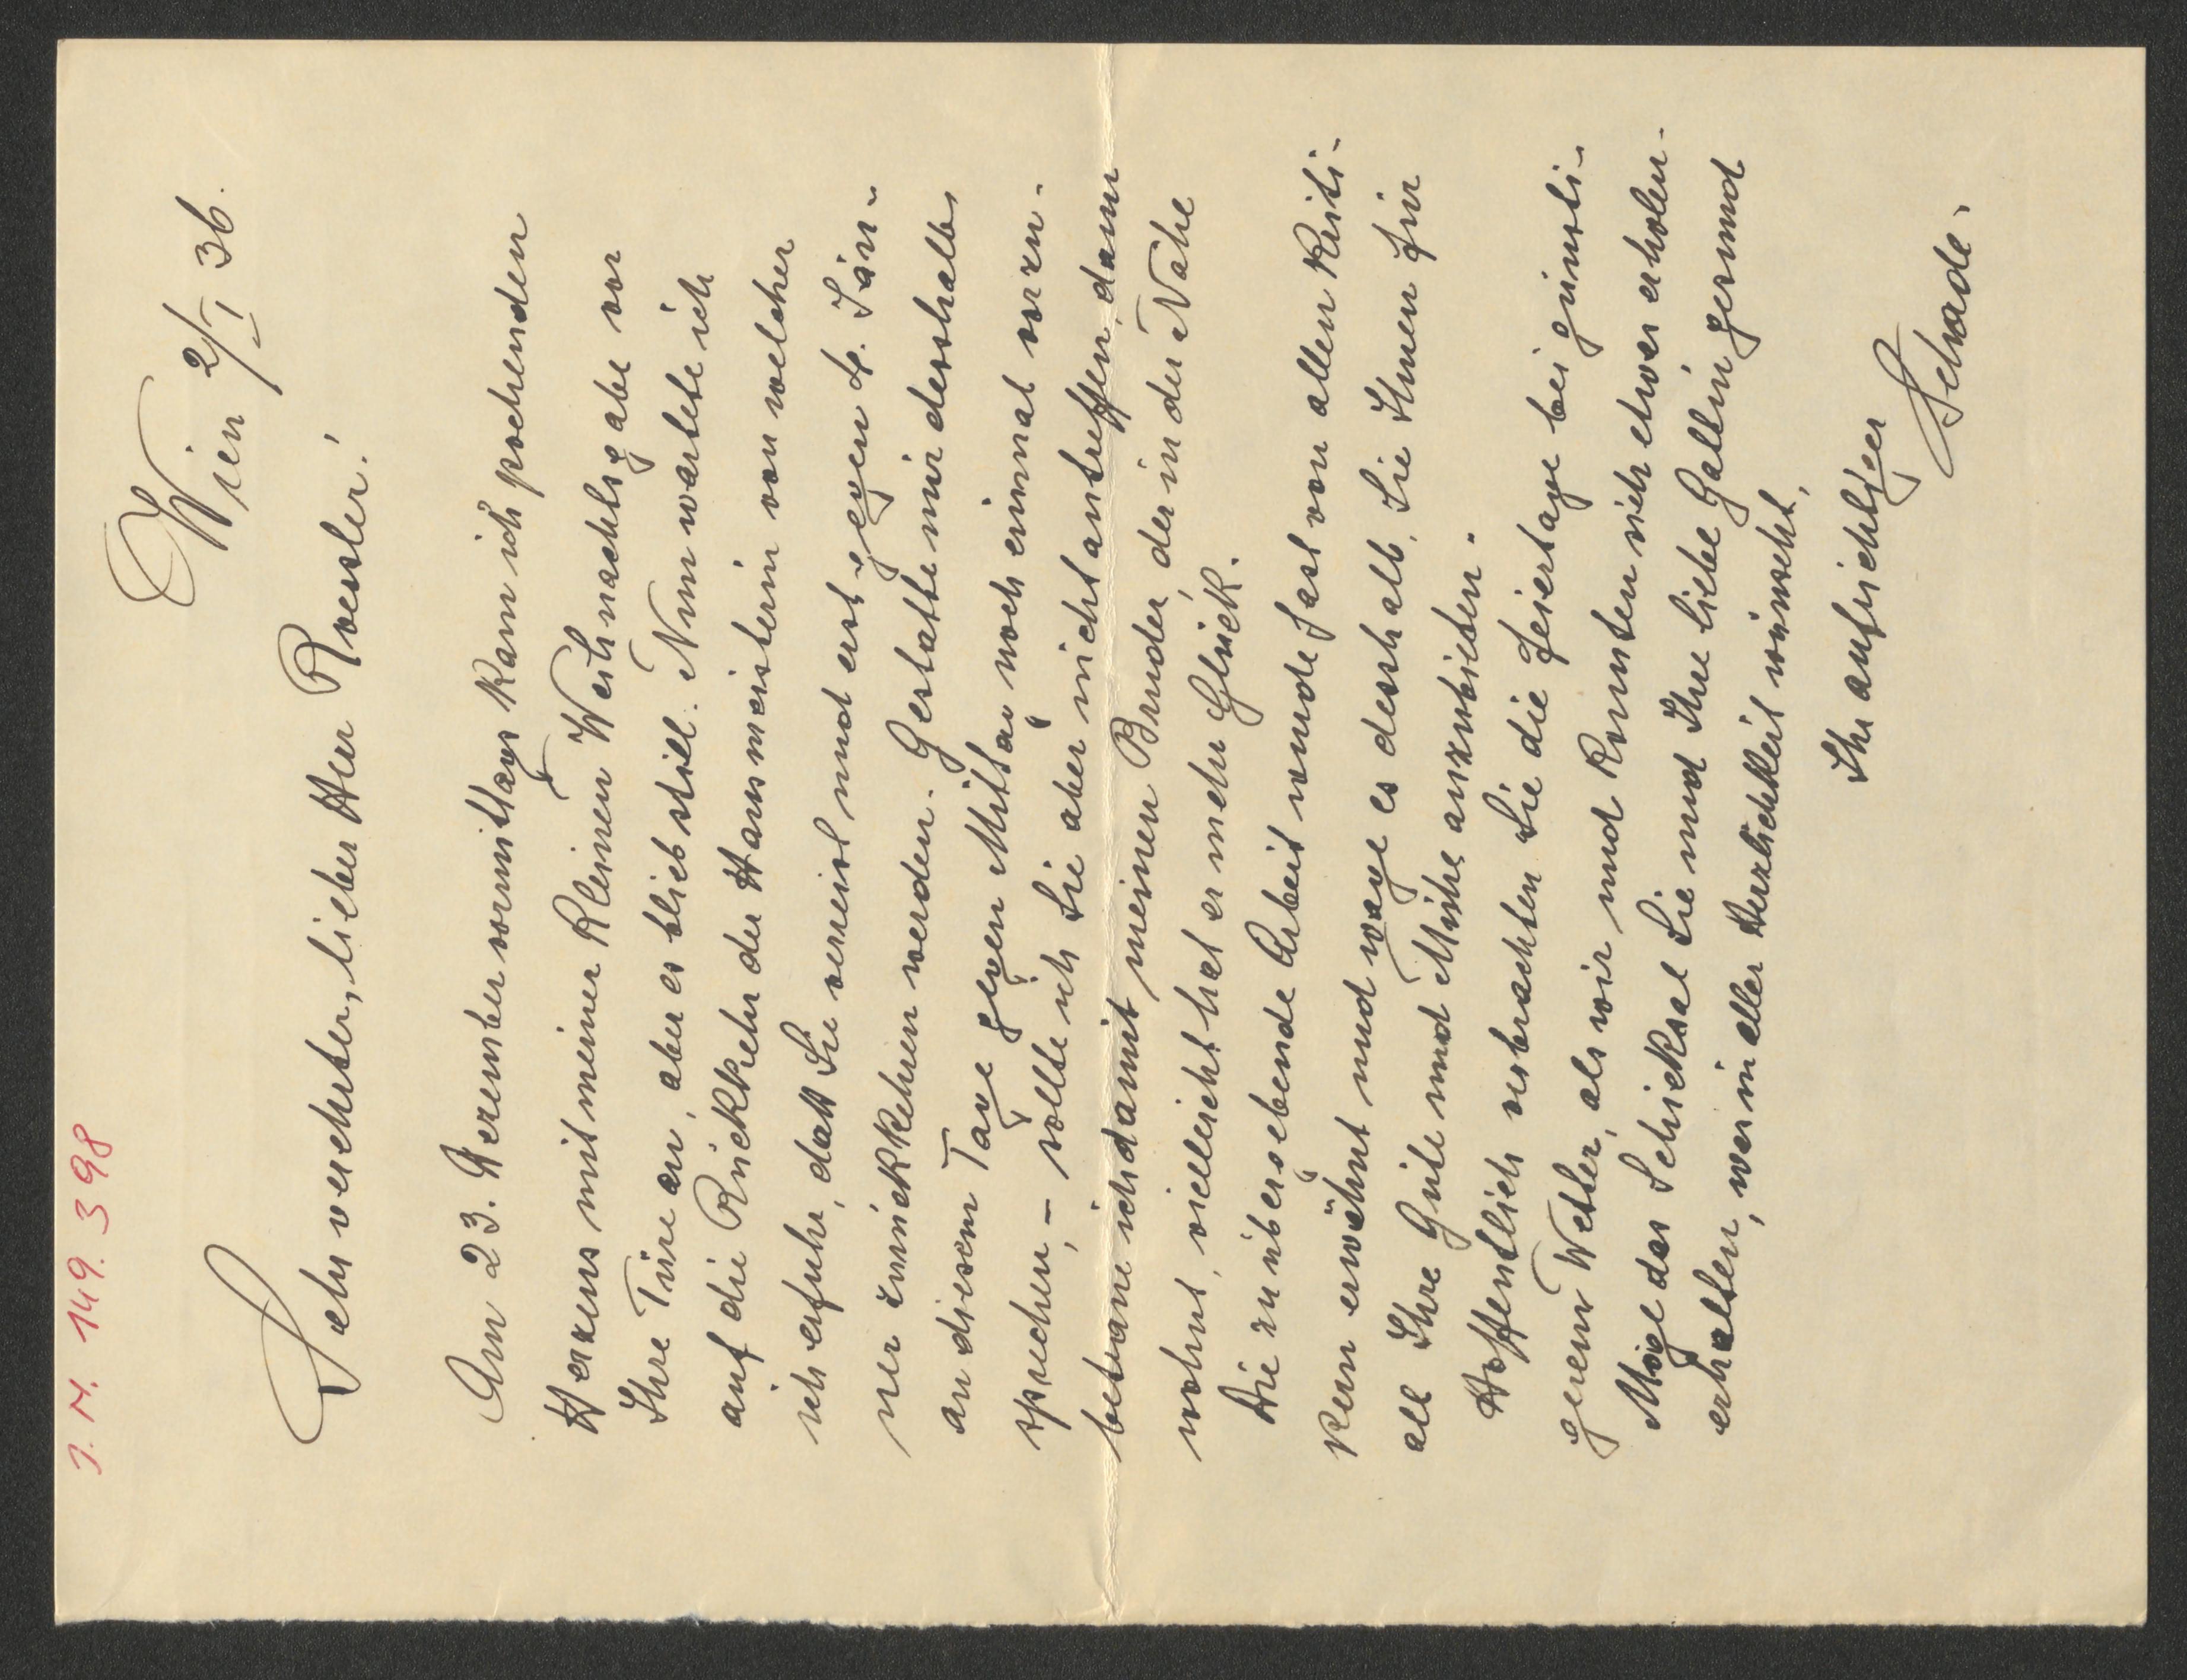 J. N. 149.398
Wien 2/I 36.
Sehr verehrter, lieber Herr Roessler!
Am 23. Dezember vormittags kam ich pochenden
Herzens mit meiner kleinen Weihnachtsgabe vor
Ihre Türe an, aber es blieb still. Nun wartete ich
auf die Rückkehr der Hausmeisterin von welcher
ich erfuhr, daß Sie verreist und erst gegen 4. Jän-
ner zurückkehren werden. Gestatte mir deshalb
an diesem Tage gegen Mittag noch einmal vorzu-
sprechen, – sollte ich Sie aber nicht antreffen, dann
betraue ich damit meinen Bruder, der in der Nähe
wohnt, vielleicht hat er mehr Glück.
Die zu übergebende Arbeit wurde fast von allen Kriti-
kern erwähnt und wage es deshalb, Sie Ihnen für
all Ihre Güte und Mühe anzubieten.
Hoffentlich verbrachten Sie die Feiertage bei günsti-
gerem Wetter, als wir und konnten sich etwas erholen.
Möge das Schicksal Sie und Ihre liebe Gattin gesund
erhalten, was in aller Herzlichkeit wünscht,
Ihr aufrichtiger
Schade.